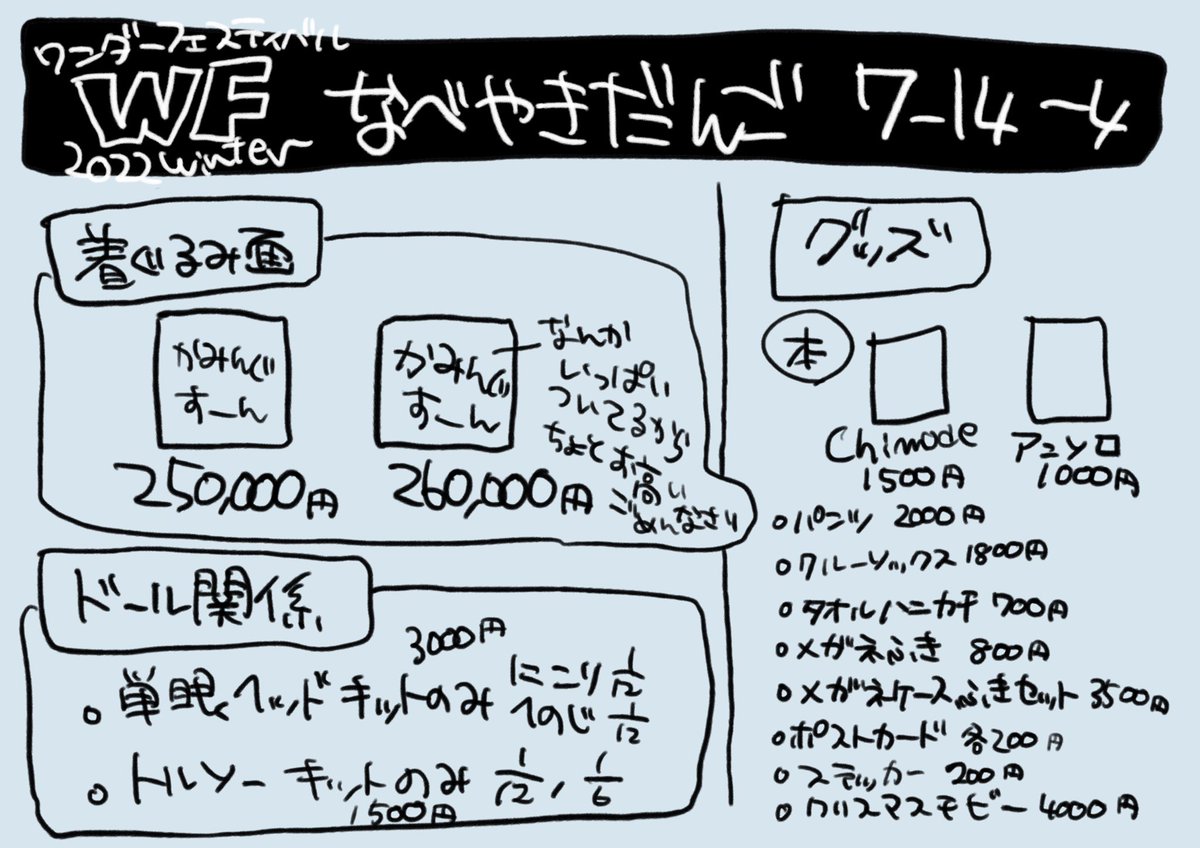 ワンダーフェスティバル
WF
2022 winter
なべやきだんご 7-14-4
着ぐるみ面
かみんぐ
すーん
250,000円
かみんぐ
すーん
260,000円
なんか
いっぱい
ついてるから
ちょとお高い
ごめんなさい
ドール関係
3000円
○単眼ヘッドキットのみ にこり 1/12
へのじ 1/12
○トルソー キットのみ 1/12, 1/6
1500円
グッズ
本
Chimode
1500円
アユソロ
1000円
○パンツ 2000円
○クルーソックス 1800円
○タオルハンカチ 700円
○メガネふき 800円
○メガネケースふきセット 3500円
○ポストカード 各200円
○ステッカー 200円
○クリスマスモビー 4000円